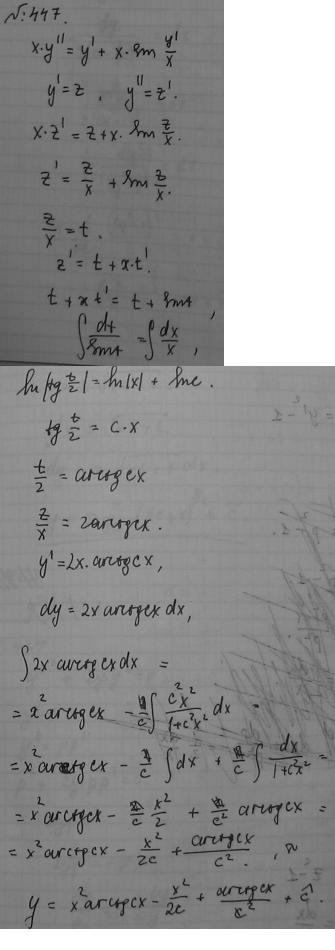 №: 447.
x·y'' = y' + x·sin y'/x
y' = z , y'' = z'.
x·z' = z + x· sin z/x.
z' = z/x + sin z/x.
z/x = t.
z' = t + x·t'.
t + x t' = t + sin t ,
∫ dt/sin t = ∫ dx/x ,
ln |tg t/2| = ln|x| + ln c .
tg t/2 = c·x
t/2 = arctg cx
z/x = 2arctg cx .
y' = 2x· arctg cx ,
dy = 2x arctg cx dx ,
∫ 2x arctg cx dx =
= x² arctg cx - 1/c ∫ c²x²/(1+c²x²) dx =
= x² arctg cx - 1/c ∫ dx + 1/c ∫ dx/(1+c²x²) =
= x² arctg cx - x²/2 + 1/c² arctg cx =
= x² arctg cx - x²/2c + arctg cx/c² .
y = x² arctg cx - x²/2c + arctg cx/c² + ĉ.